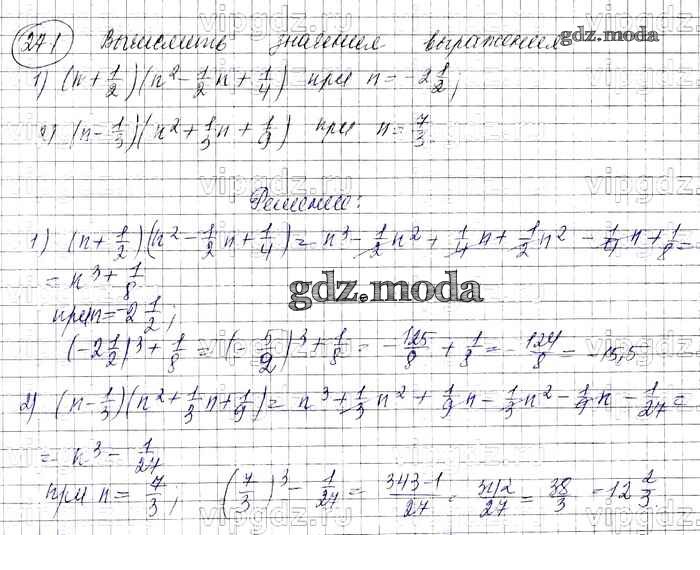 271 Вычислить значения выражения gdz.moda
1) (n + 1/2)(n² - 1/2 n + 1/4) при n = -2 1/2;
2) (n - 1/3)(n² + 1/3 n + 1/9) при n = 7/3.
Решение:
1) (n + 1/2)(n² - 1/2 n + 1/4) = n³ - 1/2 n² + 1/4 n + 1/2 n² - 1/4 n + 1/8 =
= n³ + 1/8
gdz.moda
при n = -2 1/2;
(-2 1/2)³ + 1/8 = (- 5/2)³ + 1/8 = - 125/8 + 1/8 = - 124/8 = -15,5
2) (n - 1/3)(n² + 1/3 n + 1/9) = n³ + 1/3 n² + 1/9 n - 1/3 n² - 1/9 n - 1/27 =
= n³ - 1/27
gdz.moda
при n = 7/3; (7/3)³ - 1/27 = 343-1/27 = 342/27 = 38/3 = 12 2/3
vipgdz.ru